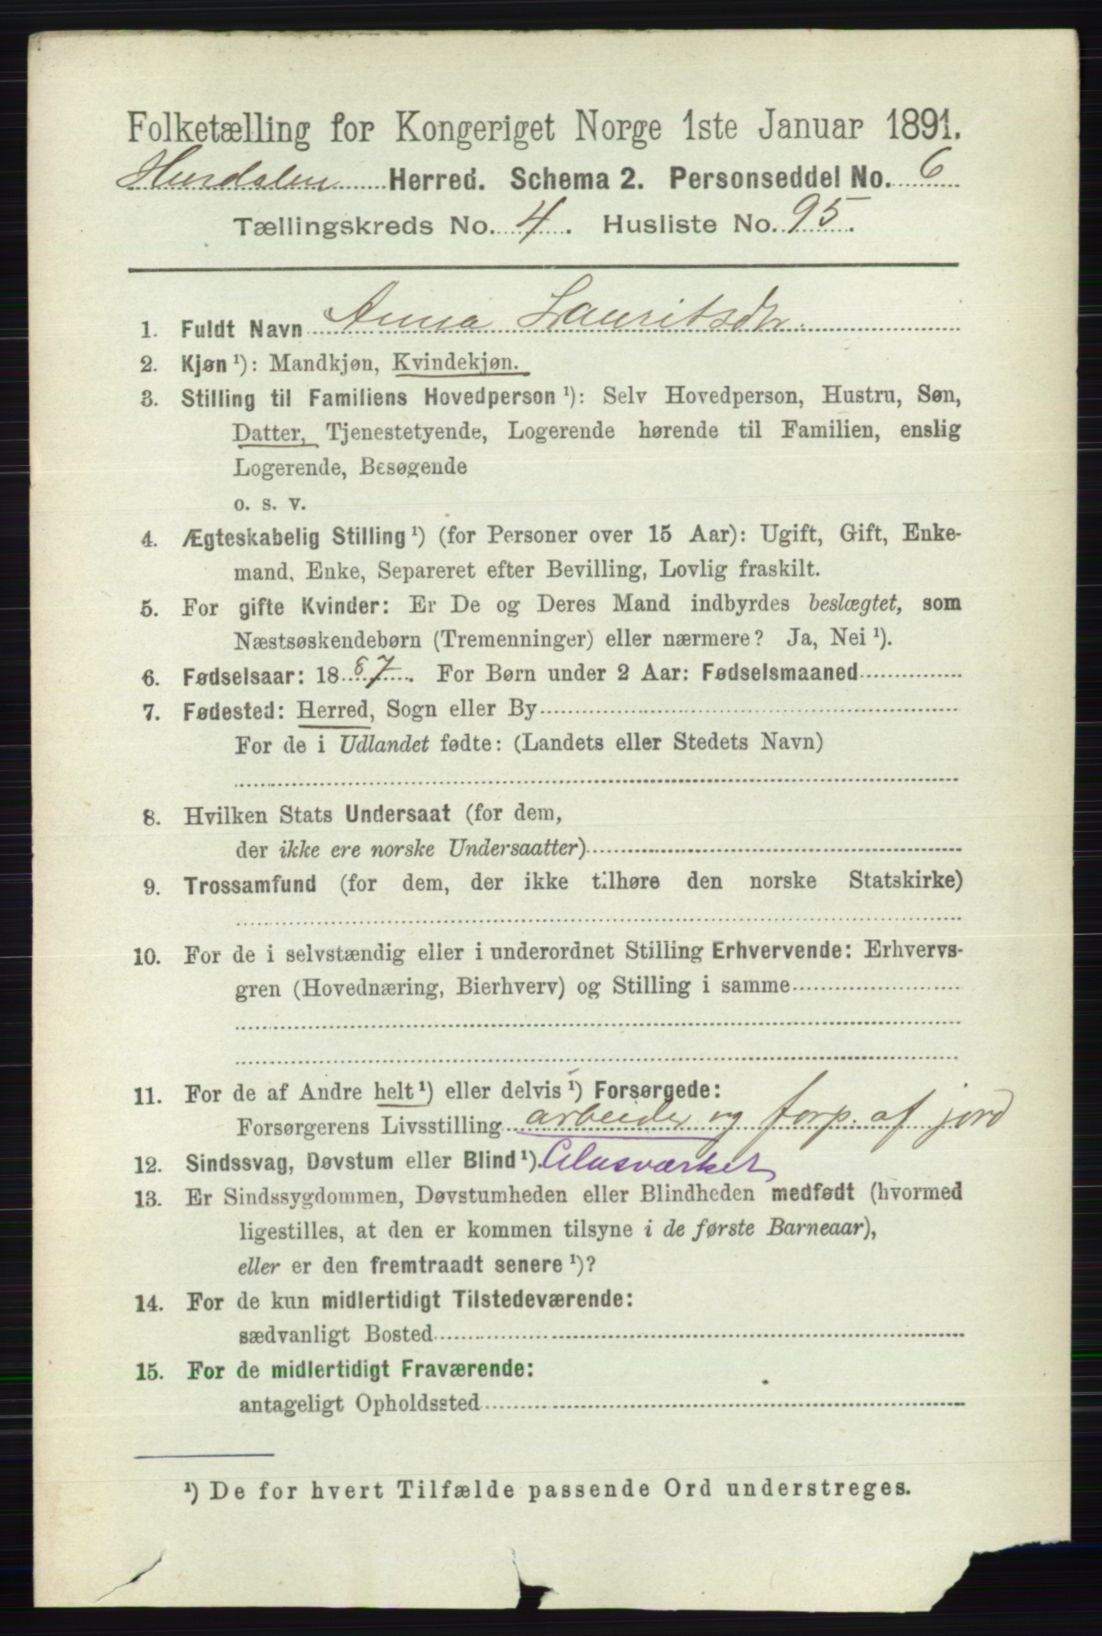 Folketælling for Kongeriget Norge 1ste Januar 1891.
Hurdalen Herred. Schema 2. Personseddel No. 6
Tællingskreds No. 4. Husliste No. 95.
1. Fuldt Navn Anna Lauritsdtr.
2. Kjøn ¹): Mandkjøn, Kvindekjøn.
3. Stilling til Familiens Hovedperson ¹): Selv Hovedperson, Hustru, Søn,
Datter, Tjenestetyende, Logerende hørende til Familien, enslig
Logerende, Besøgende
o. s. v.
4. Ægteskabelig Stilling ¹) (for Personer over 15 Aar): Ugift, Gift, Enke-
mand, Enke, Separeret efter Bevilling, Lovlig fraskilt.
5. For gifte Kvinder: Er De og Deres Mand indbyrdes beslægtet, som
Næstsøskendebørn (Tremenninger) eller nærmere? Ja, Nei ¹).
6. Fødselsaar: 1887. For Børn under 2 Aar: Fødselsmaaned
7. Fødested: Herred, Sogn eller By
For de i Udlandet fødte: (Landets eller Stedets Navn)
8. Hvilken Stats Undersaat (for dem,
der ikke ere norske Undersaatter)
9. Trossamfund (for dem, der ikke tilhøre den norske Statskirke)
10. For de i selvstændig eller i underordnet Stilling Erhvervende: Erhvervs-
gren (Hovednæring, Bierhverv) og Stilling i samme
11. For de af Andre helt ¹) eller delvis ¹) Forsørgede:
Forsørgerens Livsstilling arbeider og forp. af jord
12. Sindssvag, Døvstum eller Blind ¹). Glasværket
13. Er Sindssygdommen, Døvstumheden eller Blindheden medfødt (hvormed
ligestilles, at den er kommen tilsyne i de første Barneaar),
eller er den fremtraadt senere ¹)?
14. For de kun midlertidigt Tilstedeværende:
sædvanligt Bosted
15. For de midlertidigt Fraværende:
antageligt Opholdssted
¹) De for hvert Tilfælde passende Ord understreges.